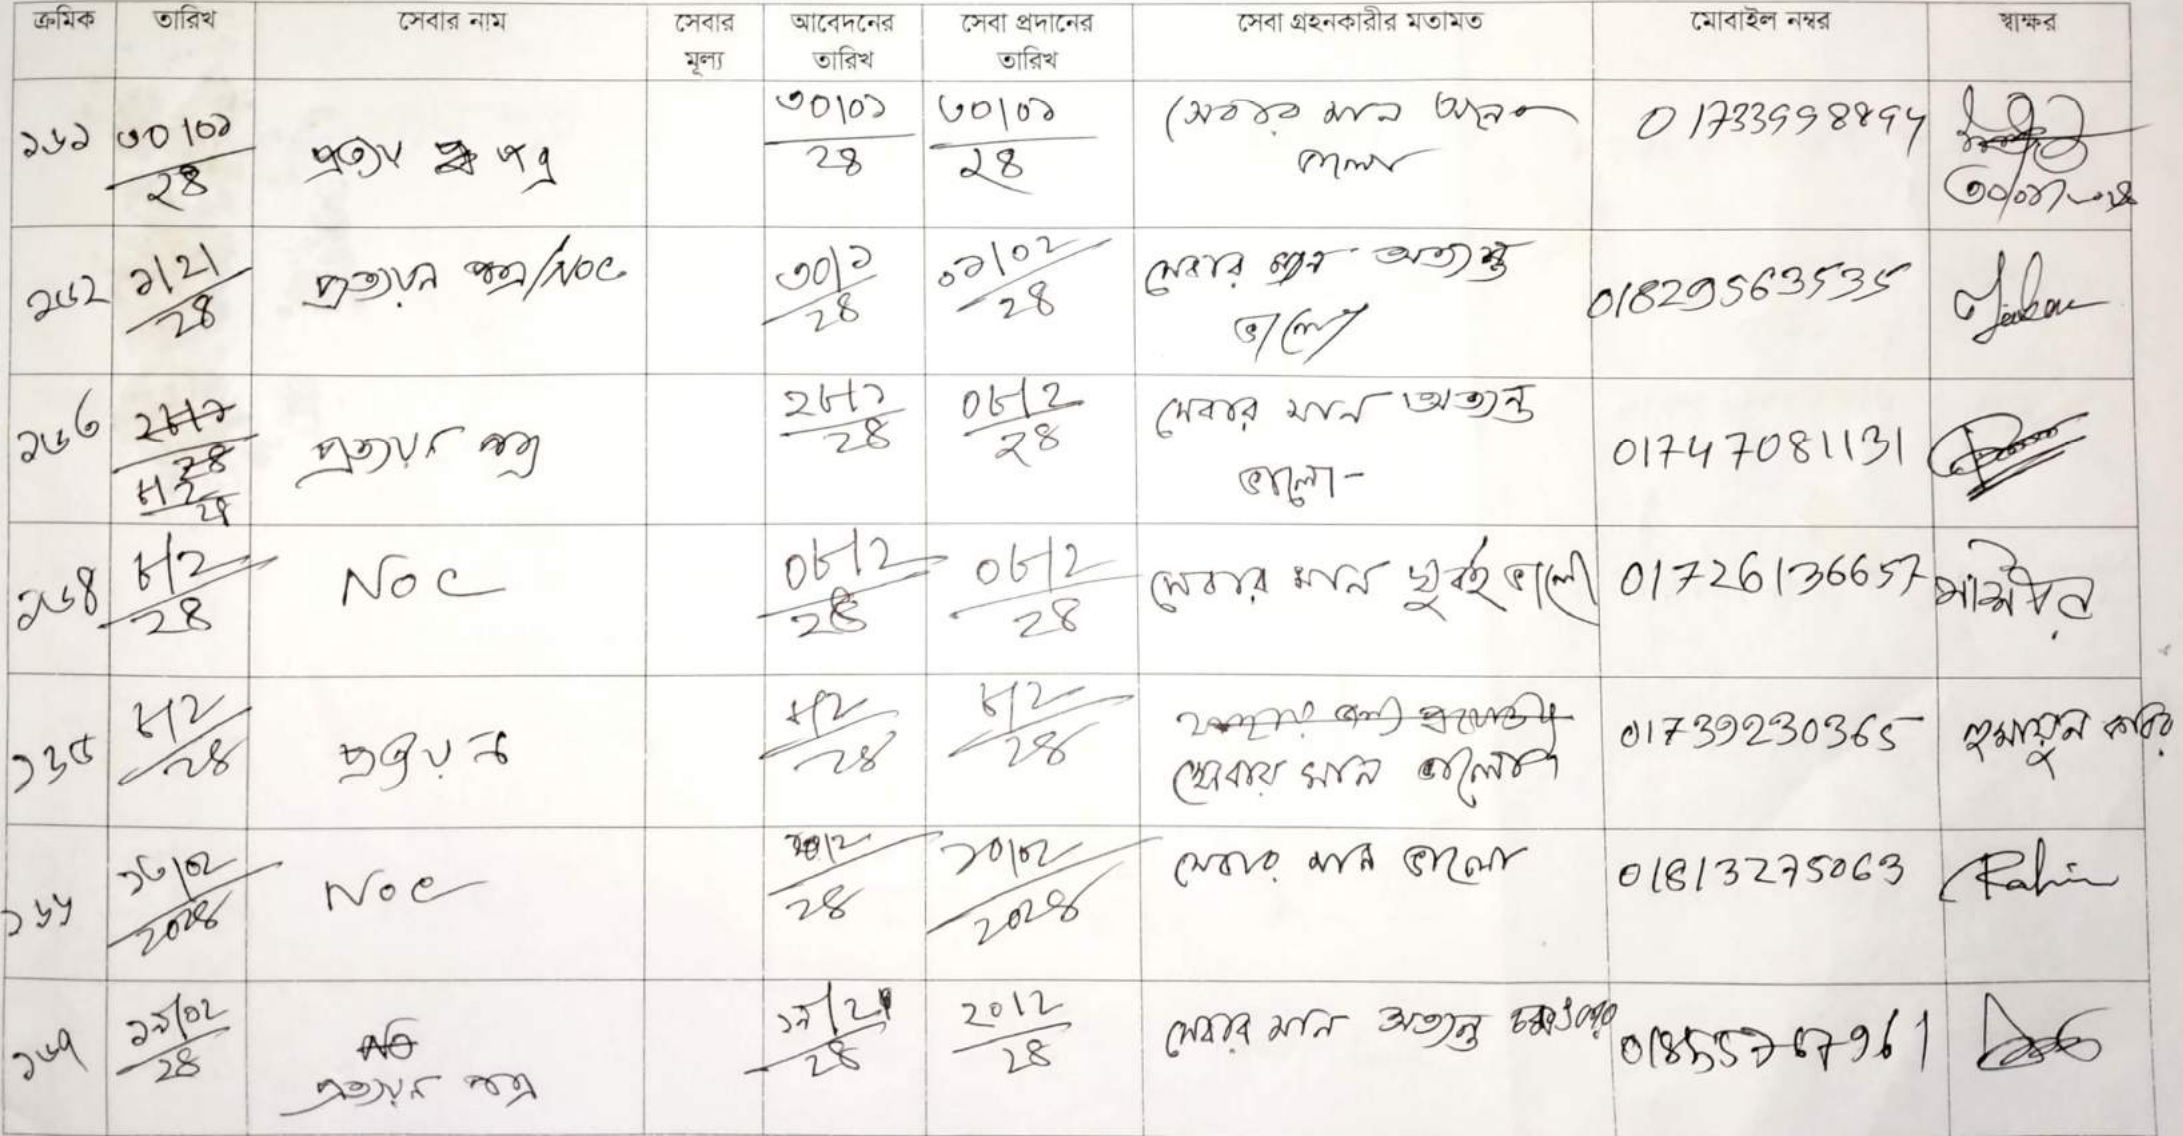 ক্রমিক তারিখ সেবার নাম সেবার মূল্য আবেদনের তারিখ সেবা প্রদানের তারিখ সেবা গ্রহনকারীর মতামত মোবাইল নম্বর স্বাক্ষর
১৬১ ৩০/০১/২৪ প্রত্যয় পত্র ৩০/০১/২৪ ৩০/০১/২৪ সেবার মান অনেক
ভালো
৩০/০১/২০২৪
১৬২ ১/২/২৪ প্রত্যয়ন পত্র/NOC ৩০/১/২৪ ০১/০২/২৪ সেবার মান অত্যন্ত 01829563535
ভালো
১৬৩ ৮/২/২৪ প্রত্যয়ন পত্র ২৮/১/২৪ ০৮/২/২৪ সেবার মান অত্যন্ত 01747081131
ভালো-
১৬৪ ৮/২/২৪ NOC ০৮/২/২৪ ০৮/২/২৪ সেবার মান খুবই ভালো 01726136657
১৬৫ ৮/২/২৪ প্রত্যয়ন ৮/২/২৪ ৮/২/২৪
সেবার মান ভালো 01739230365 হুমায়ুন কবির
১৬৬ /০২/২০২৪ NOC /২৪ ১০/০২/২০২৪ সেবার মান ভালো 01813275063 Rahim
১৬৭ ১৯/০২/২৪ প্রত্যয়ন পত্র ১৯/২/২৪ ২০/২/২৪ সেবার মান অত্যন্ত